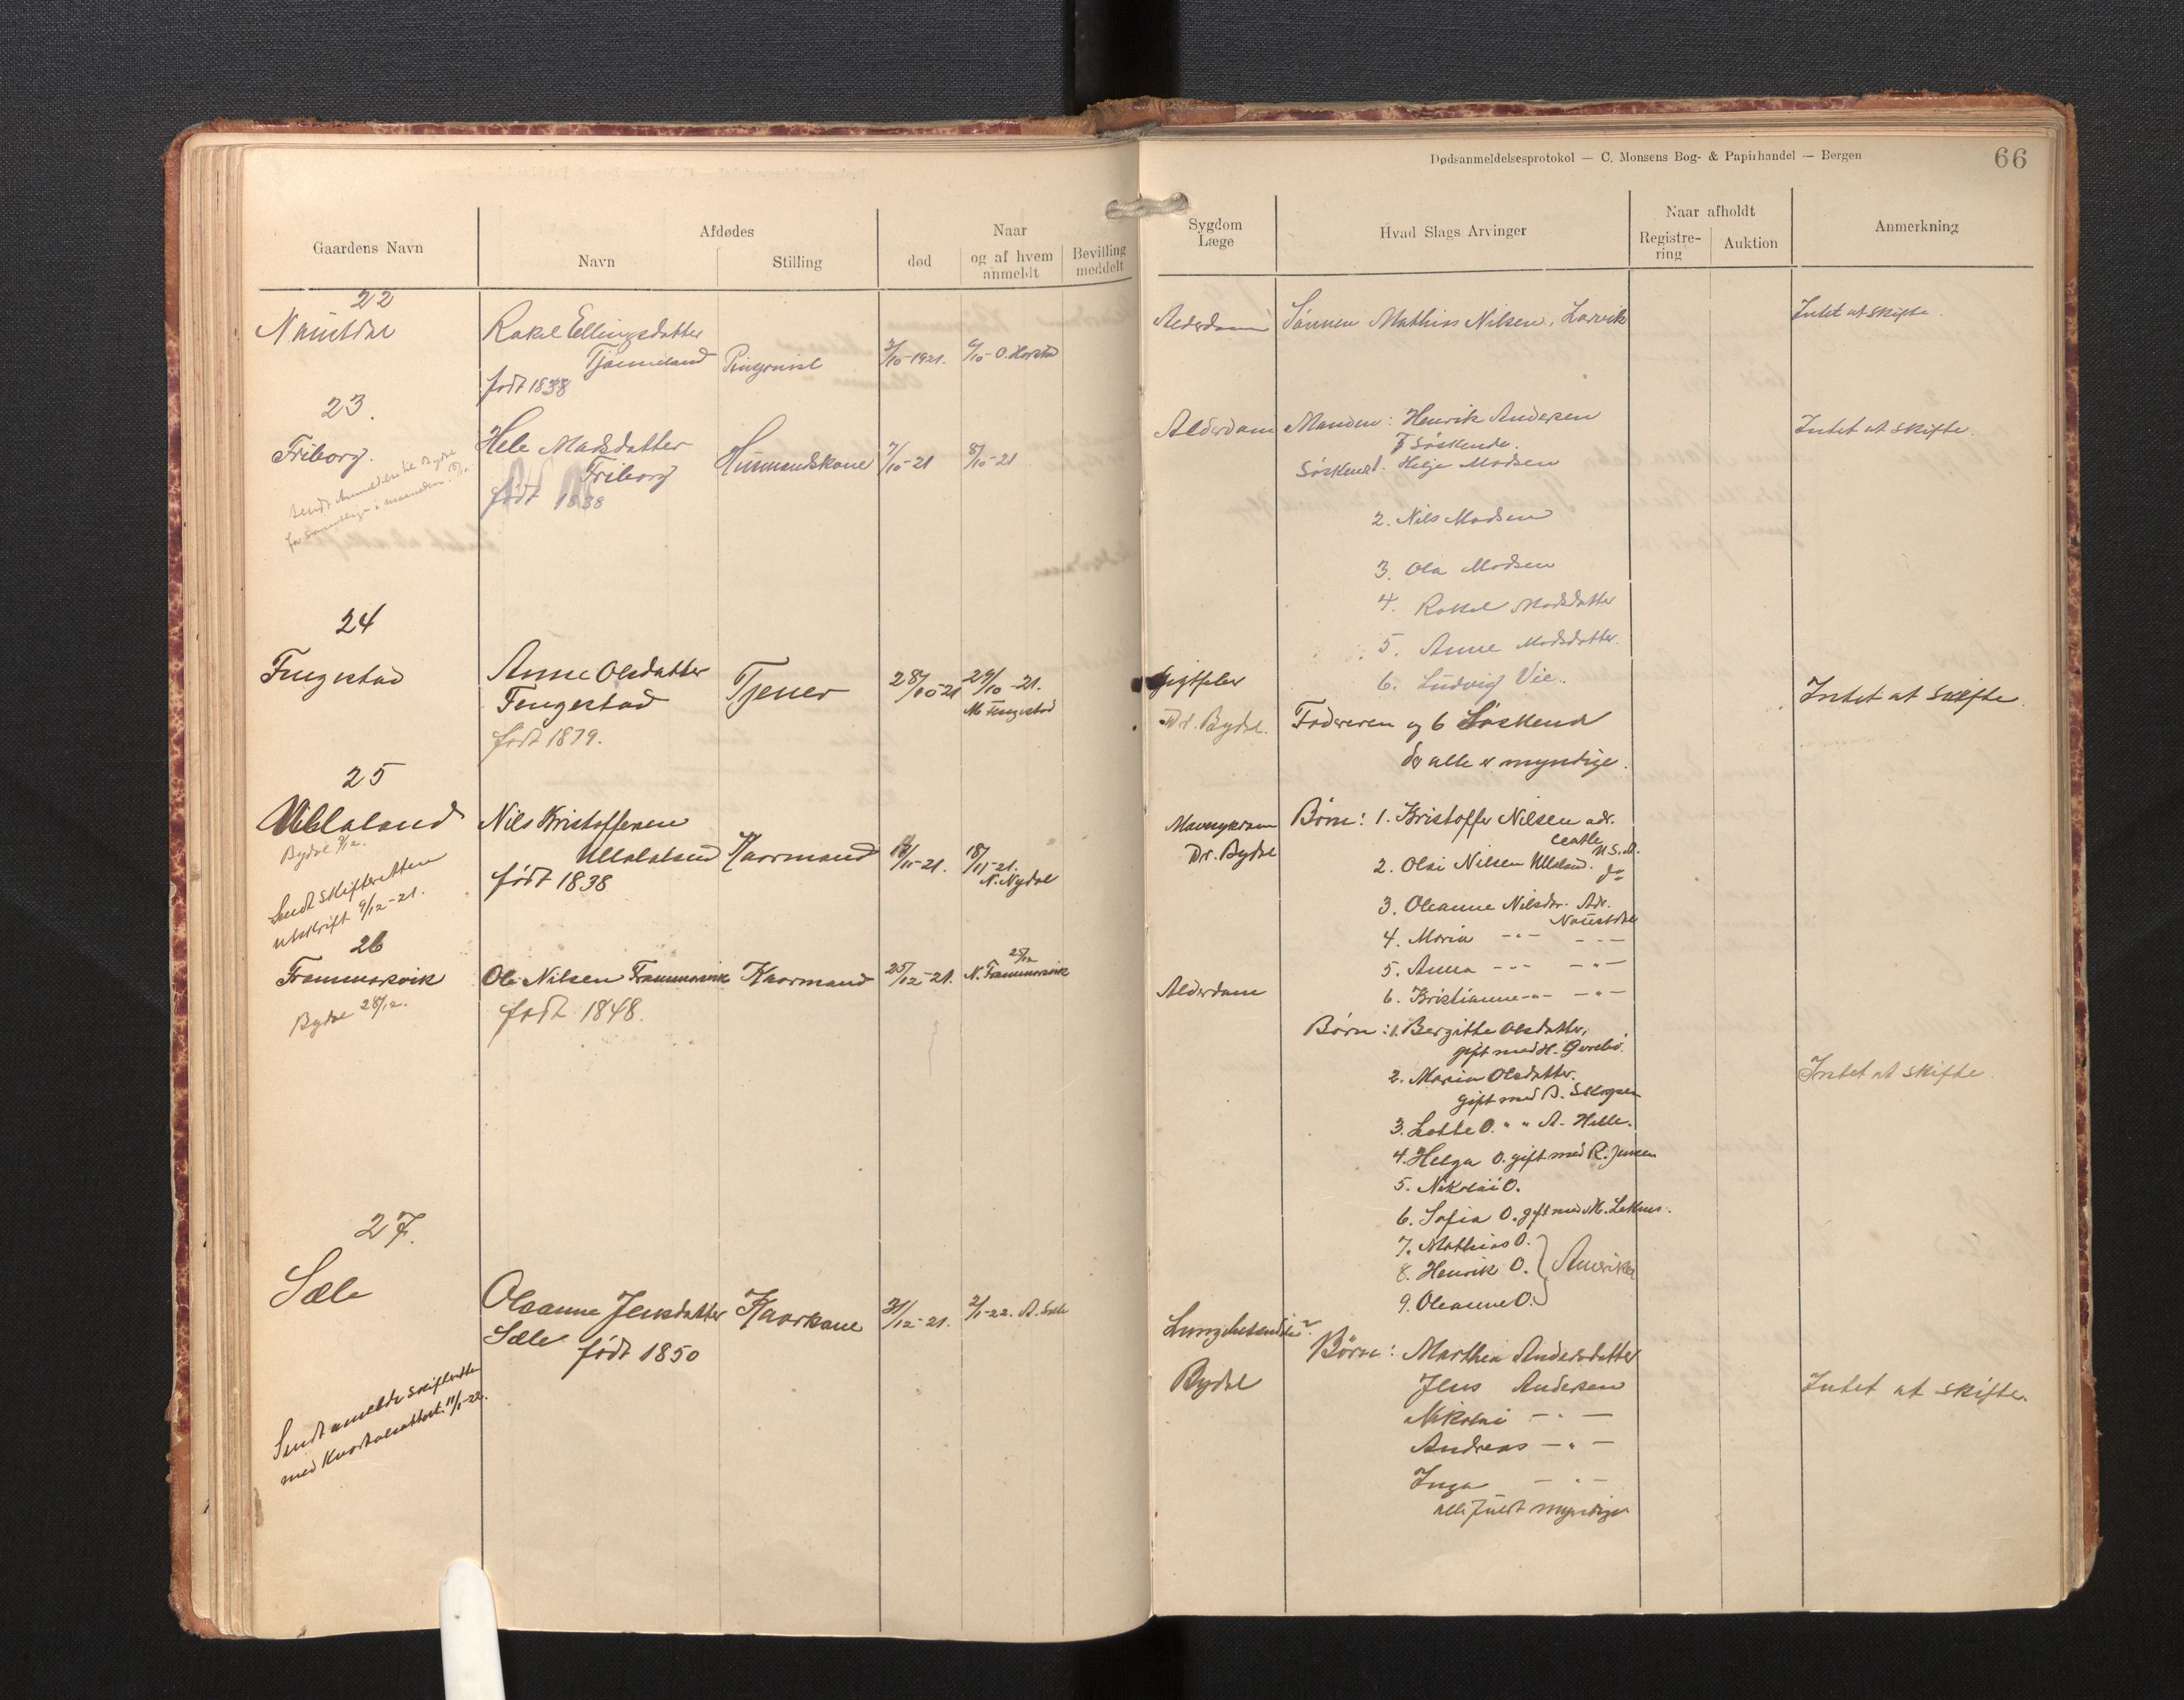 Dødsanmeldelsesprotokol — C. Monsens Bog- & Papirhandel — Bergen
66
Gaardens Navn
Afdødes
Navn
Stilling
Naar
død
og af hvem anmeldt
Bevilling meddelt
Sygdom
Læge
Hvad Slags Arvinger
Naar afholdt
Registre-
ring
Auktion
Anmerkning
22
Naustdal
Rakel Ellingsdatter
Tjønneland
født 1838
3/10-1921.
6/10-O. Horstad
Alderdom
Sønnen Mathias Nilsen, Larvik
Intet at skifte.
23.
Friborg.
sendt Anmeldelse til Bydal
for samtlige i maaneden.
Hele Madsdatter
Friborg
født 1838
Husmandskone
7/10-21
8/10-21
Alderdom
Manden: Henrik Andersen
7 Søskende.
Søskend 1. Helje Madsen
2. Nils Madsen
3. Ola Madsen
4. Rakel Madsdatter
5. Anne Madsdatter.
6. Ludvig Vie.
Intet at skifte.
24
Fengestad
Anne Olsdatter
Fengestad
født 1879.
Tjener
28/10-21
29/10-21.
M Fengestad
Gigtfeber
Dr. Bydal.
Faderen og 6 Søskend
der alle er myndige.
Intet at skifte.
25
Ullaland
Bydal 9/12.
Sendt Skifteretten
utskrift 9/12-21.
Nils Kristoffersen
Ullaland
født 1838
Kaarmand
18/11-21.
N. Nydal
Mavesykdom
Dr. Bydal
Børn: 1. Kristoffer Nilsen adr.
Ceatle U.S.A.
2. Olai Nilsen Ullaland. do
3. Oleanne Nilsdr. Adr.
Naustdal
4. Maria -"- -"-
5. Anna -"- -"-
6. Kristianne -"- -"-
26
Frammarsvik
Bydal 28/12.
Ole Nilsen Frammarsvik
født 1848.
Kaarmand
25/12-21.
25/12
N. Frammarsvik
Alderdom
Børn: 1. Bergitte Olsdatter,
gift med H. Ørebø.
2. Maria Olsdatter.
gift med B. Skogsen
3. Lotte O. " " A. Helle.
4. Helga O. gift med R. Jensen
5. Nikolai O.
6. Sofia O. gift med M. Leknes.
7. Mathias O.
8. Henrik O. } Amerika
9. Oleanne O.
Intet at skifte
27.
Sæle
Sendt anmeldt Skifteretten
med Kvartalsattest. 11/1-22.
Oleanne Jensdatter
Sæle født 1850
Kaarkone
31/12-21.
2/1-22. A. Sæle
Lungebetændelse
Bydal
Børn: Marthea Andersdatter
Jens Andersen
Nikolai -"-
Andreas -"-
Inga -"-
alle fuldt myndige
Intet at skifte.